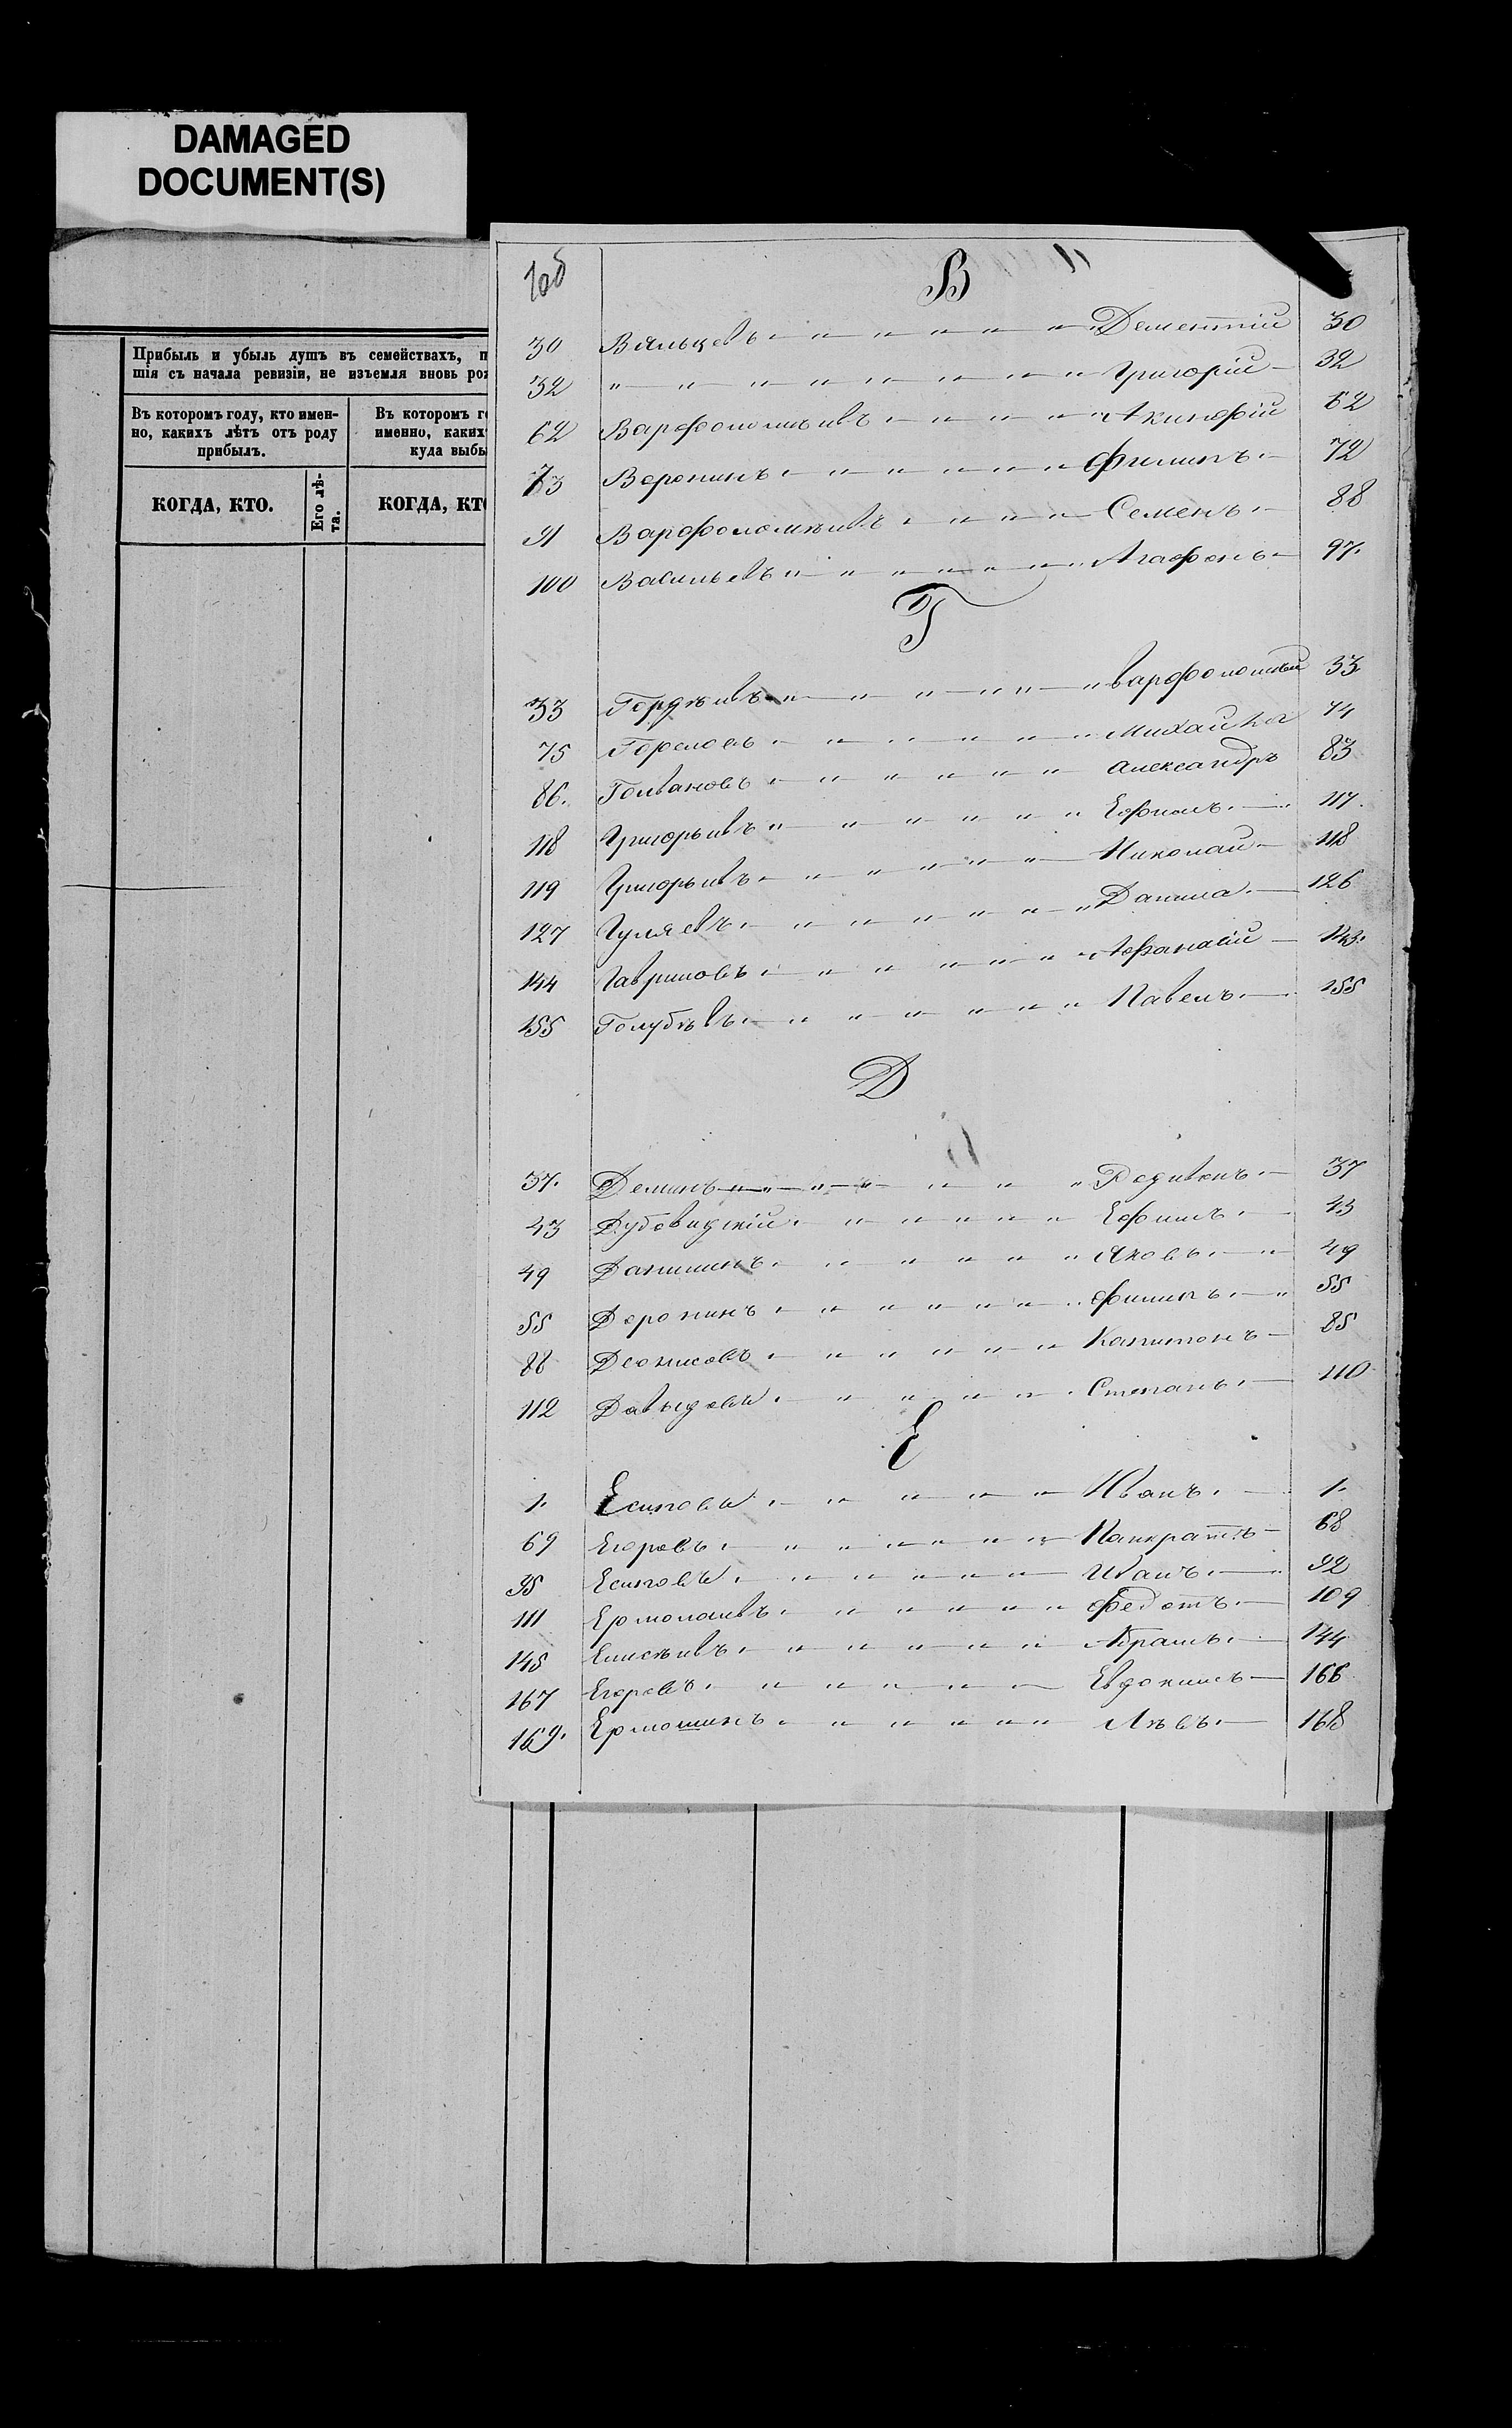 DAMAGED
DOCUMENT(S)
Прибыль и убыль душъ въ семействахъ,
шія съ начала ревизіи, не изъемля вновь
Въ которомъ году, кто имен-
но, какихъ лѣтъ отъ роду
прибылъ.
Въ которомъ
именно, какихъ
куда
КОГДА, КТО.
Его лѣ-
та.
КОГДА, КТО
В
30 Вяльцевъ Дементій 30
32 " Григорій 32
62 Варфоломѣивъ Акинфій 62
73 Воронинъ Филипъ 72
91 Варфоломѣивъ Семенъ 88
100 Васильевъ Агафонъ 97.
Г
33 Гордѣивъ Варфоломѣй 33
75 Гореловъ Михайла 74
86. Голвановъ Александръ 83
118 Григорьивъ Ефимъ 117.
119 Григорьивъ Николай 118
127 Гуляевъ Данила 126
144 Гавриловъ Афанасій 143.
155 Голубѣвъ Павелъ 155
Д
37. Деминъ Родивонъ 37
43 Дубовицкій Ефимъ 43
49 Данилинъ Яковъ 49
55 Доронинъ Филипъ 55
88 Деонисовъ Капитонъ 85
112 Давыдовъ Степанъ 110
Е
1. Есиповъ Иванъ 1.
69 Егоровъ Панкратъ 68
95 Есиповъ Иванъ 92
111 Ермолаивъ Федотъ 109
145 Елисѣивъ Абрамъ 144
167 Егоровъ Евдокимъ 166
169. Ермошинъ Лѣвъ 168